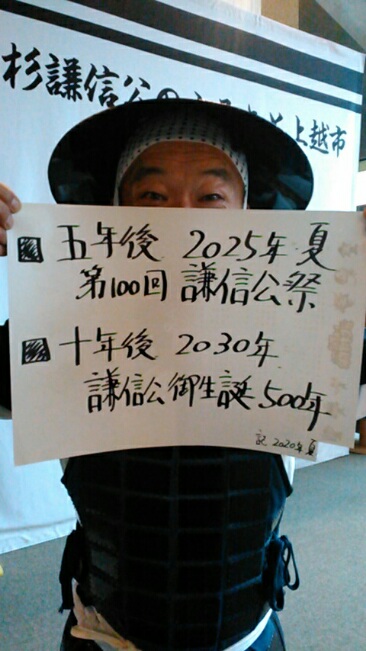 杉謙信公の
上越市
五年後 2025年 夏
第100回 謙信公祭
十年後 2030年
謙信公御生誕500年
記 2020年 夏